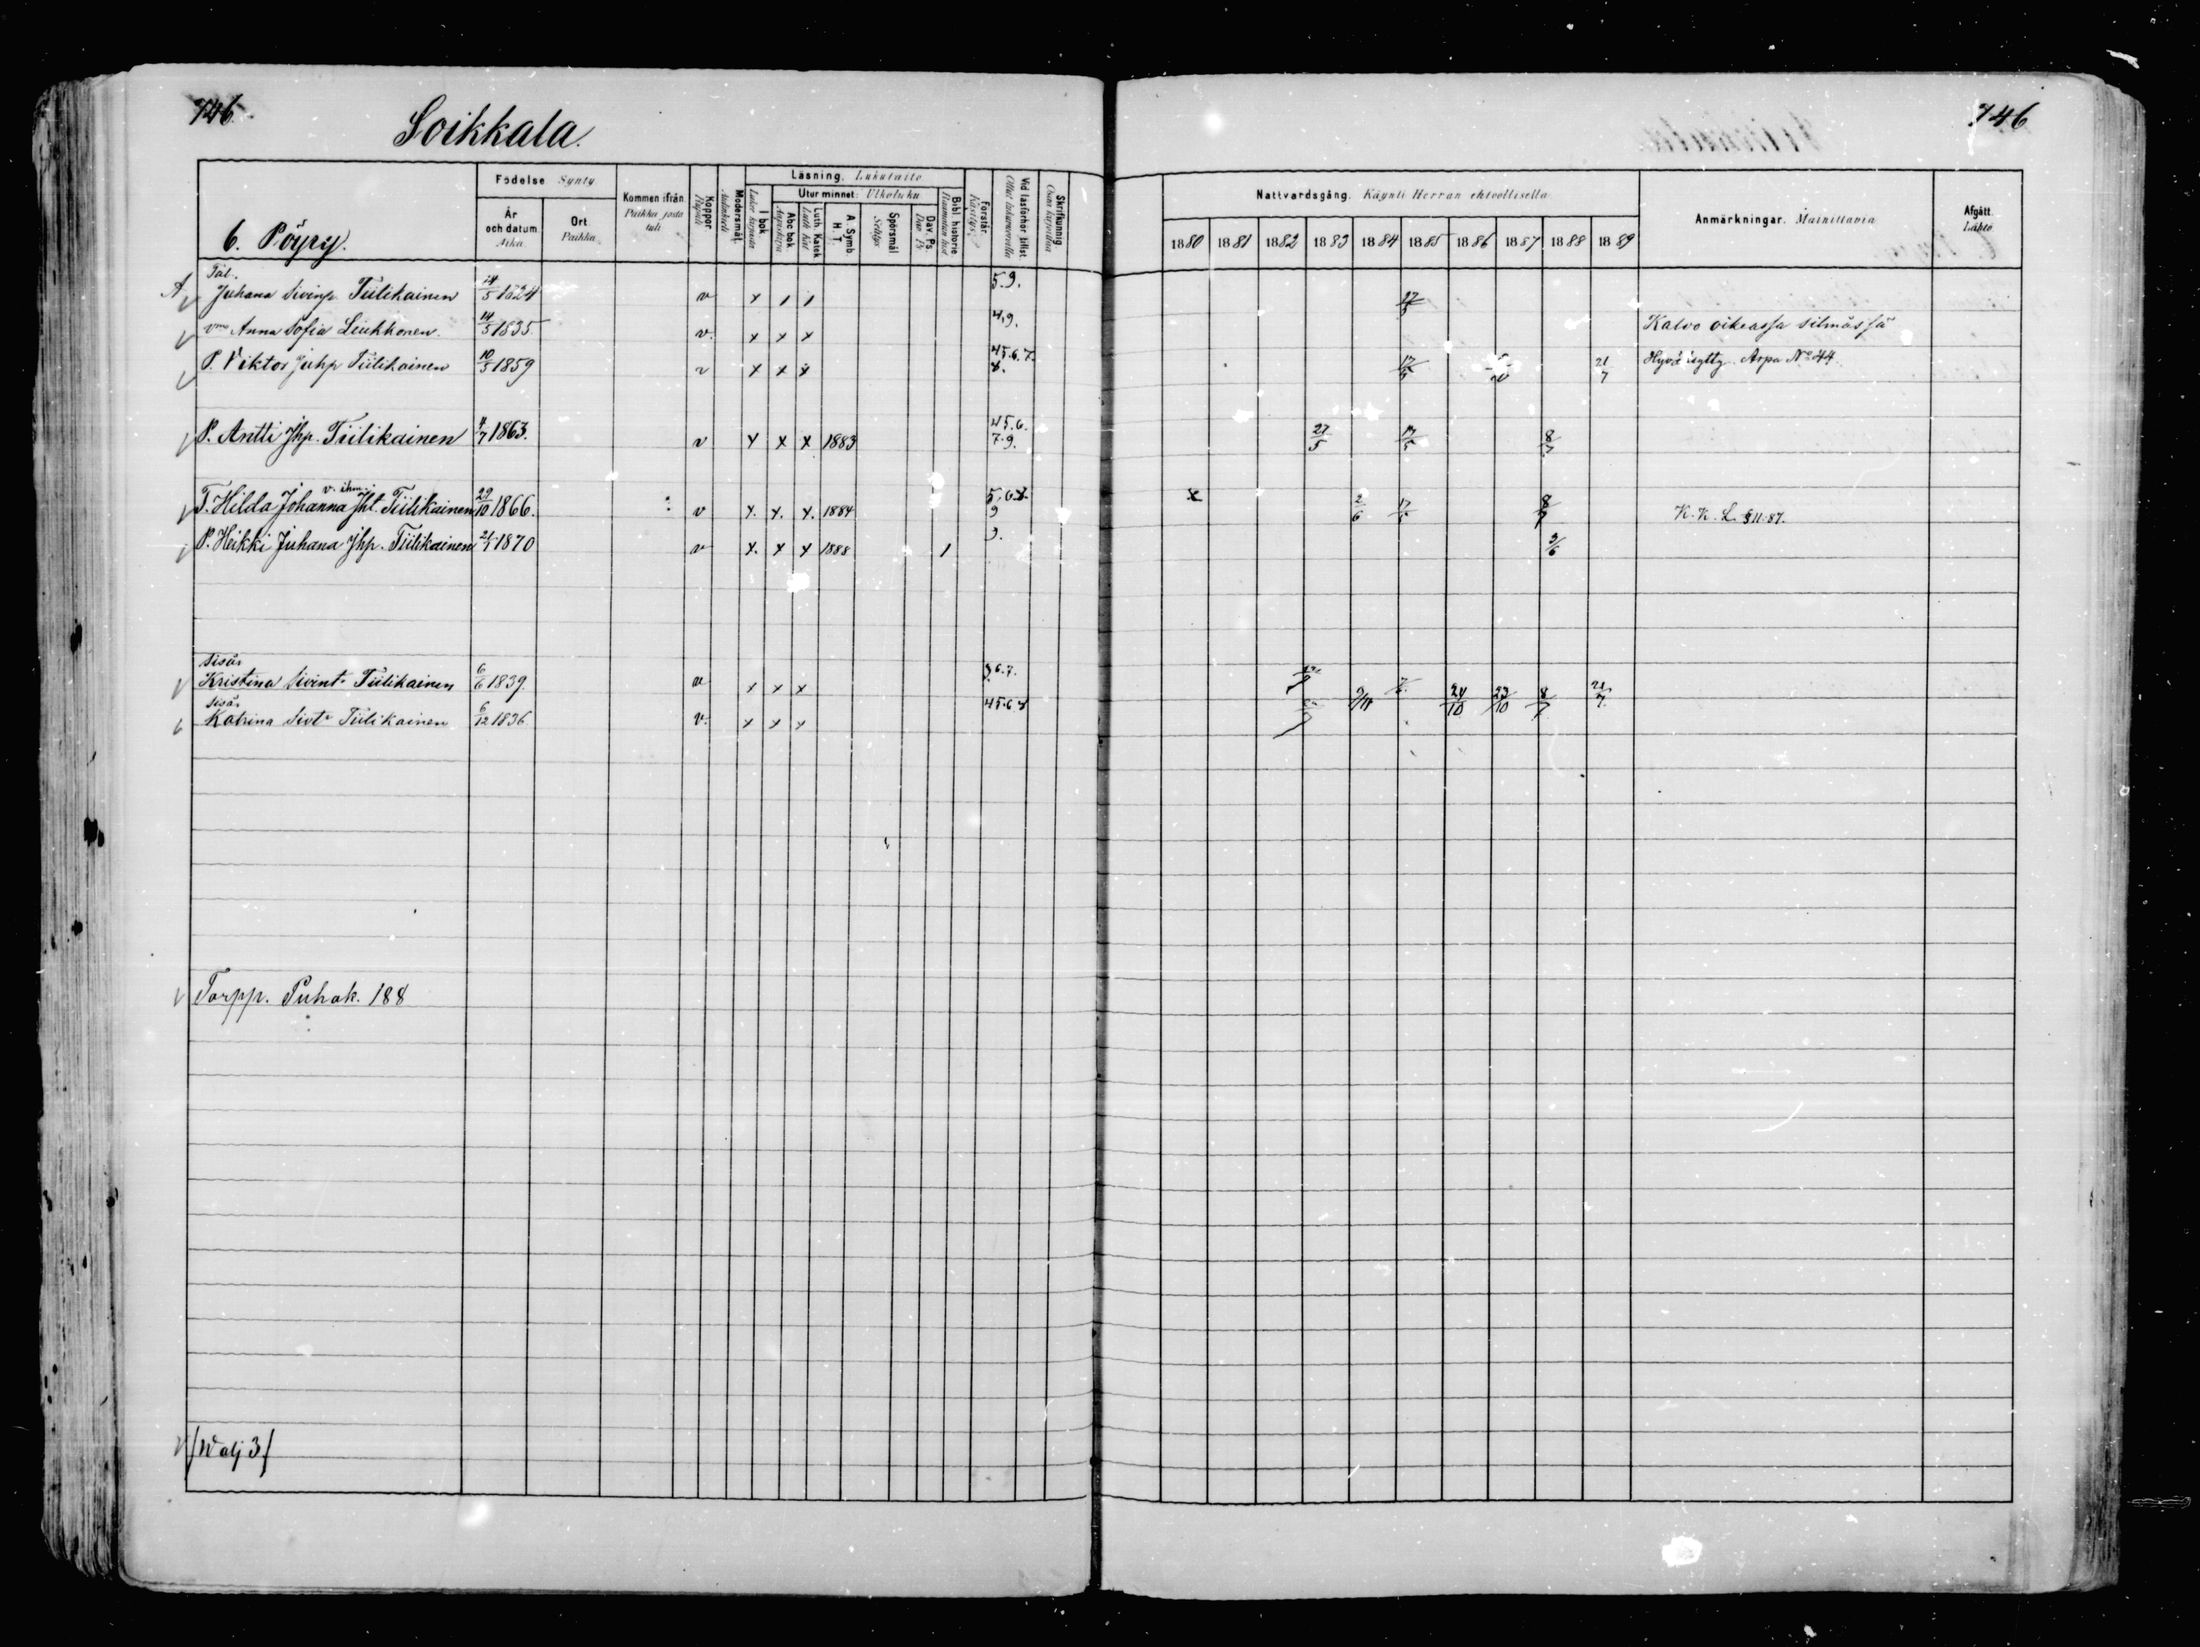 746.
Soikkala.
746
Födelse Synty
År och datum. Aika
Ort. Paikka
Kommen ifrån. Paikka josta tuli
Koppor. Rupuli
Modersmål. Äidinkieli
Läsning. Lukutaito
I bok
Utur minnet. Ulkoluku
Abc bok. Aapiskirja
Luth. Katek. Luth. Kat.
A. Symb. H. T.
Spörsmål Selitys
Dav. Ps. Dav. Ps.
Bibl. historie
Förstår. Käsitys
Vid läsförhör tillst. Ollut lukuvuorolla
Skriftkunnig Osaa kirjoittaa
Nattvardsgång. Käynti Herran ehtoollisella
1880 1881 1882 1883 1884 1885 1886 1887 1888 1889
Anmärkningar. Mainittavia
Afgått. Lähtö
6. Pöyry.
Tal.
Juhana Sivinp. Tiilikainen 14/5 1824 v x / / 5.9. 17/5
vmo Anna Sofia Liukkonen. 14/5 1835 v. x x x 4,9. Kalvo oikeassa silmässä
P. Viktor Juhp Tiilikainen 10/5 1859 v x x x 45.6.7. 8. 17/5 21/7 Hyvä Arpa No 44.
P. Antti Jhp. Tiilikainen 4/7 1863. v x x x 1883 45.6. 7.9. 27/5 17/5 8/7
v. ihm.
T. Hilda Johanna Jht. Tiilikainen 29/10 1866. v x. x. x. 1884 5.6.8. 9 x 2/6 17/5 8/7 K. K. L. § 11. 87.
P. Heikki Juhana Jhp. Tiilikainen 21/1 1870 v x. x x 1888 / 9. 3/6
Sisär
Kristina Sivint. Tiilikainen 6/6 1839. v x x x 6.7.
Sisär
Katrina Sivt. Tiilikainen 6/12 1836 v. x x x 45.6 8 24/10 23/10 8/7 21/7
Torpp. Puhak. 188
(Walj 3)